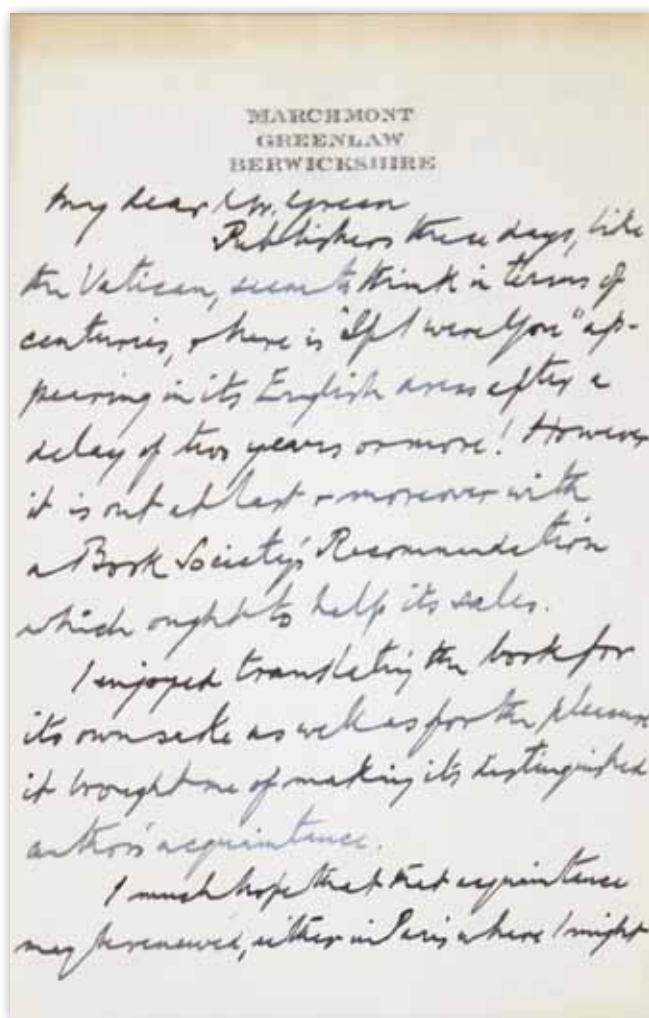 MARCHMONT
GREENLAW
BERWICKSHIRE
My dear Mr. Green
Publishers these days, like
the Vatican, seem to think in terms of
centuries, & here is "If I were You" ap-
pearing in its English dress after a
delay of two years or more! However
it is out at last & moreover with
a Book Society's Recommendation
which ought to help its sales.
I enjoyed translating the book for
its own sake as well as for the pleasure
it brought me of making its distinguished
author's acquaintance.
I much hope that that acquaintance
may be renewed, either in Paris where I might